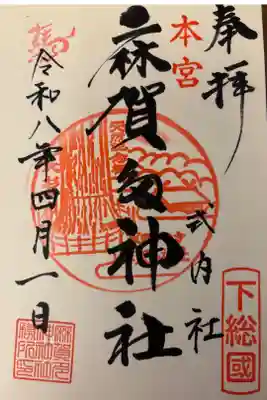 奉拝
本宮
麻賀多神社
式内社
下総國
令和八年四月一日